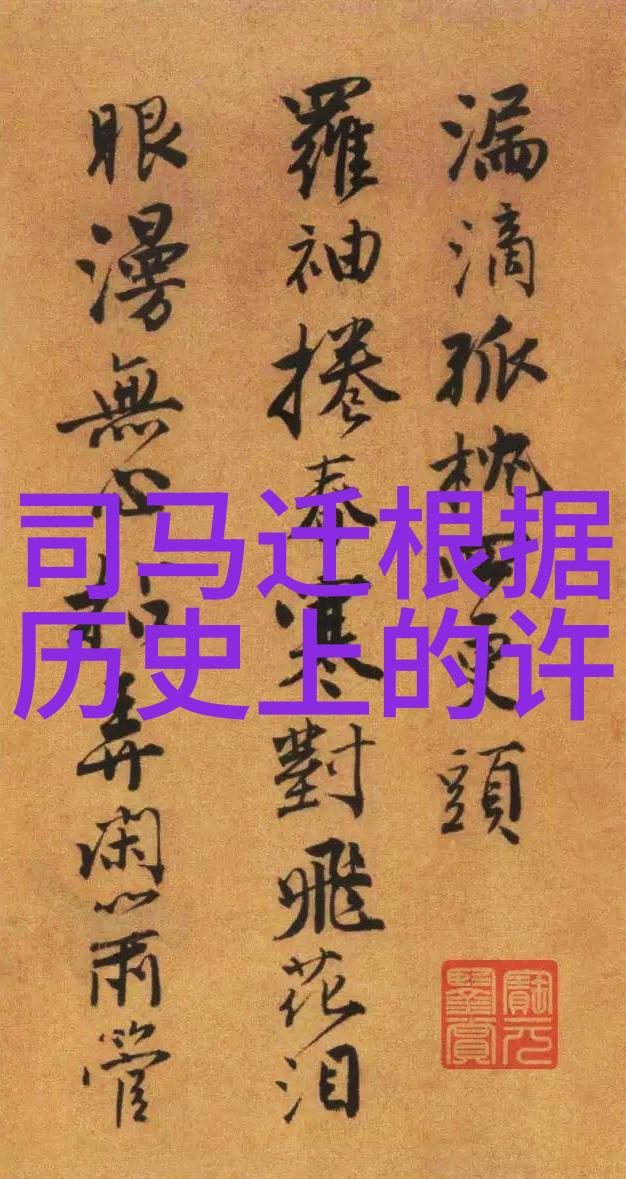 司马迁根据
历史上的许
漏滴孤枕四更頭
羅袖捲春寒對飛花泪
眼漫無心拈弄閑管